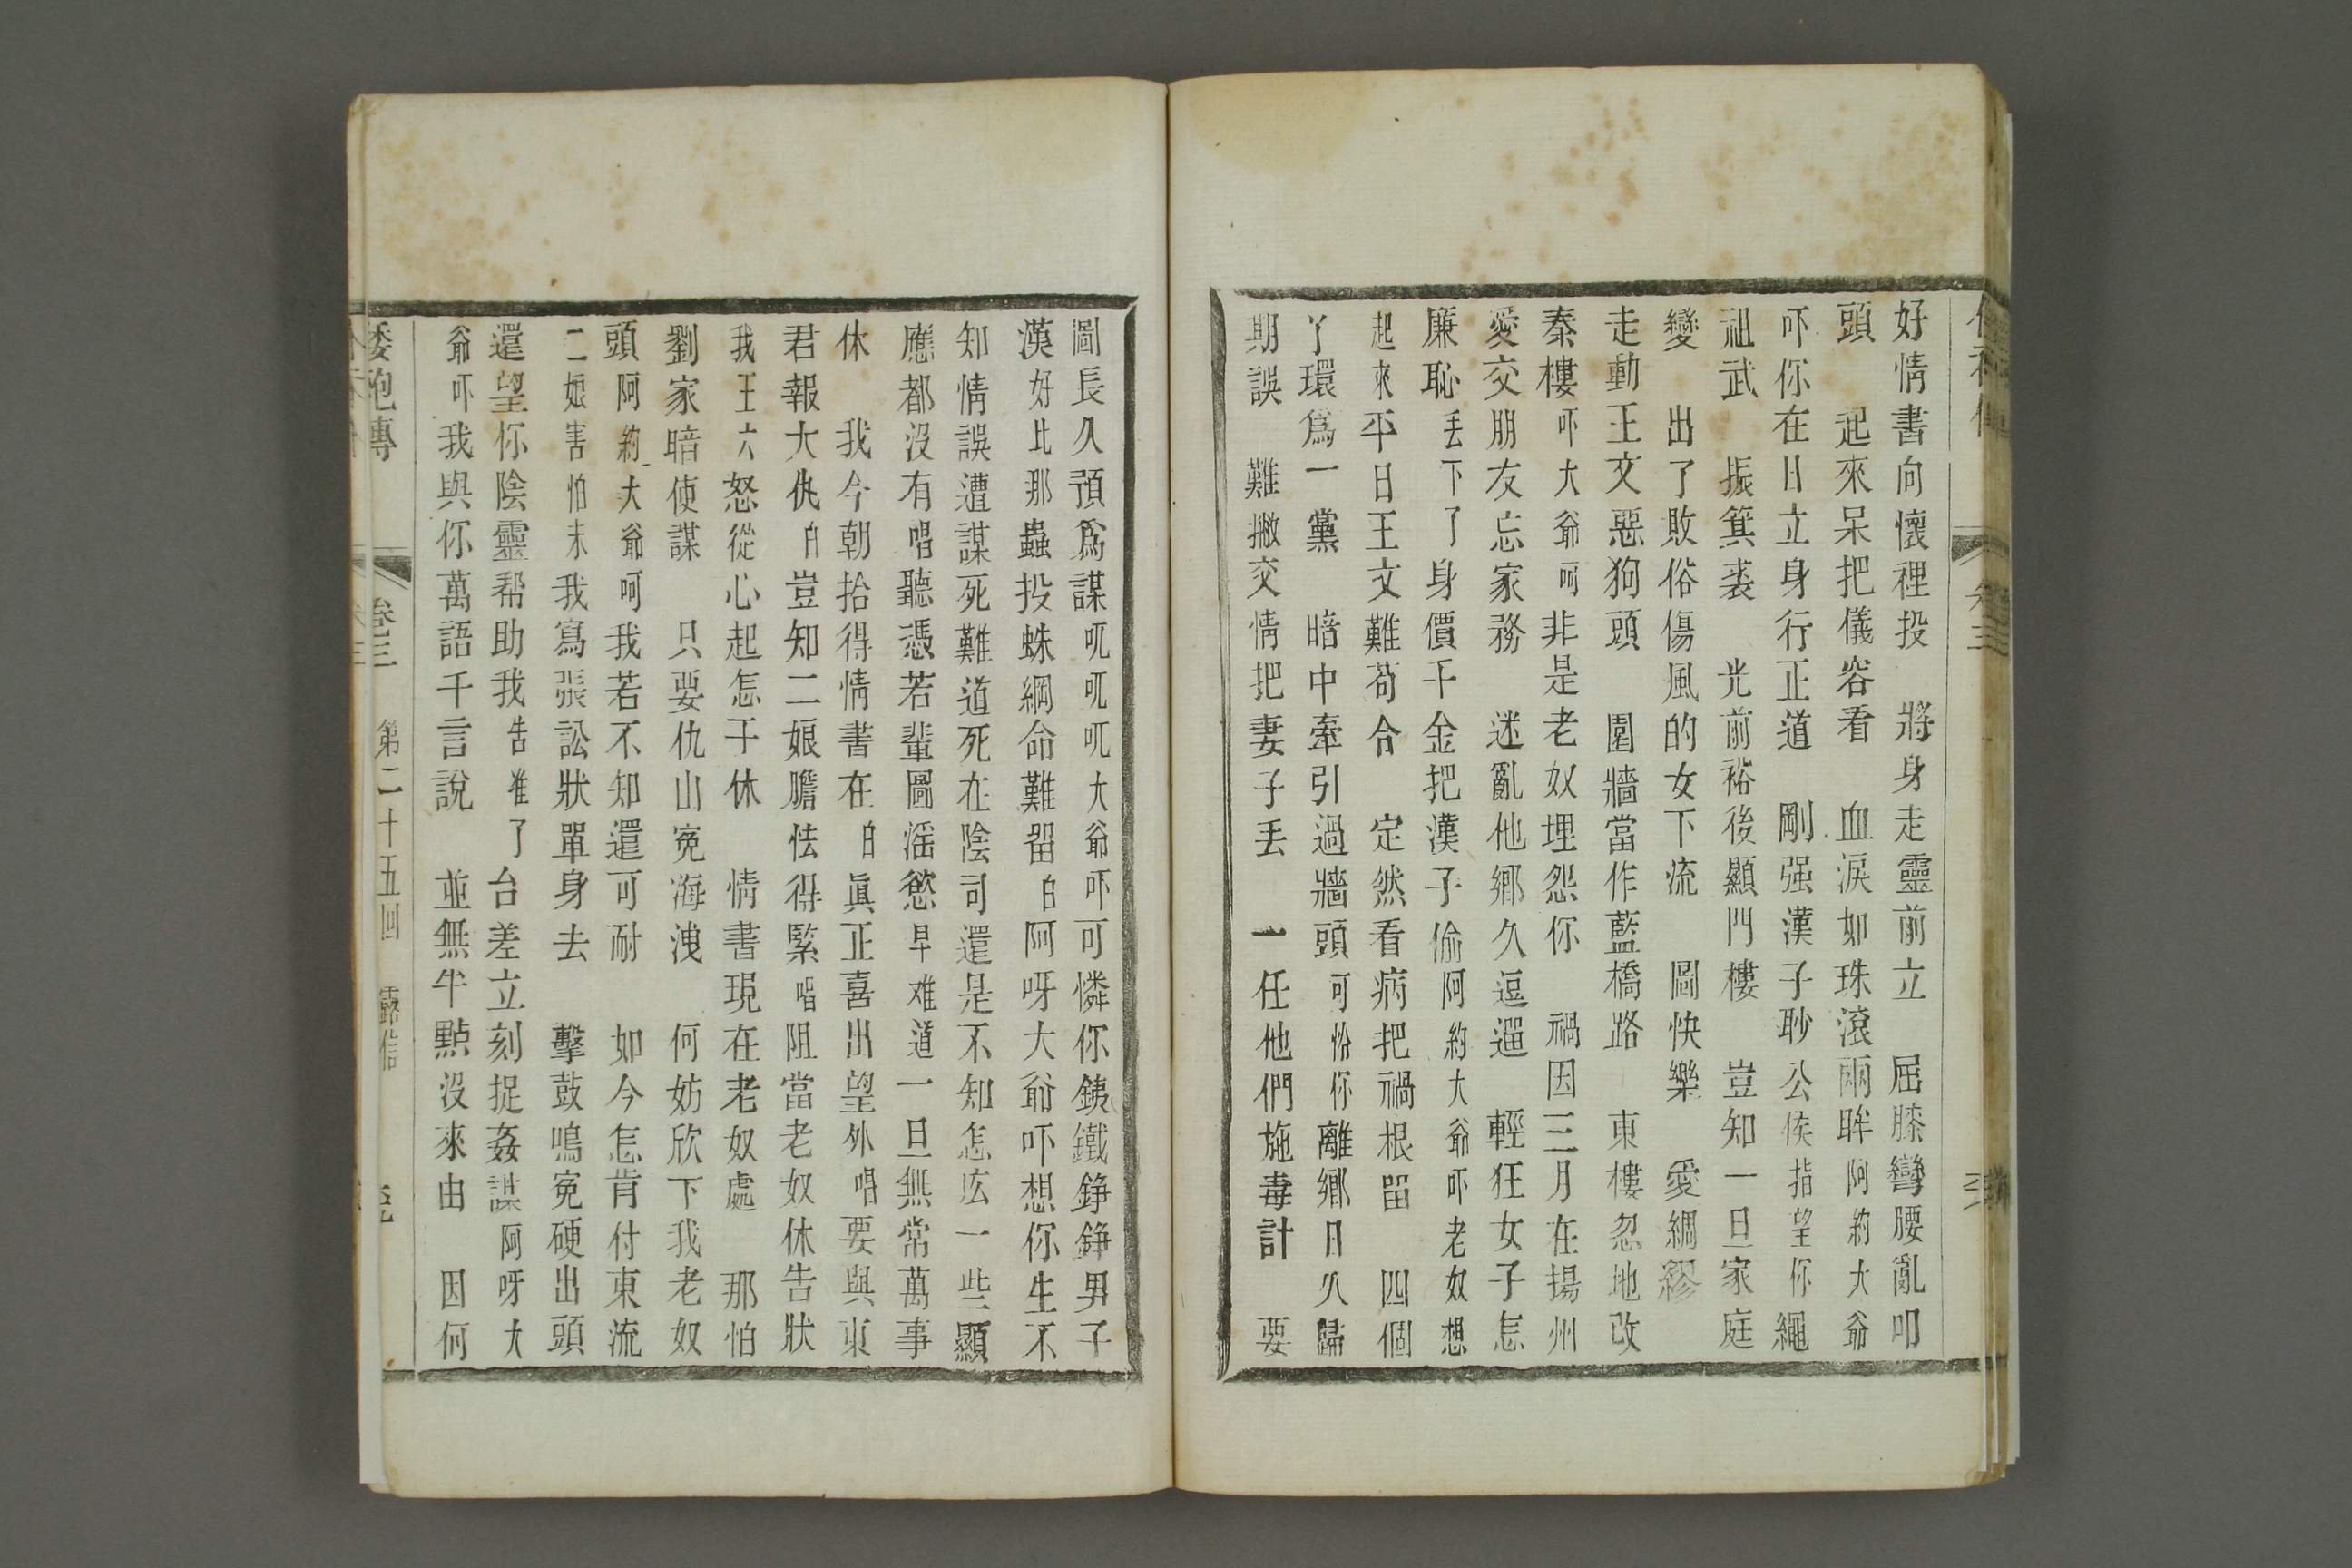 好情書向懷裡投　將身走靈前立　屈膝彎腰亂叩
頭　起來呆把儀容看　血淚如珠滾兩眸阿約大爺
吓你在日立身行正道　剛强漢子耖公侯指望你繩
祖武　振箕裘　光前裕後顯門樓　豈知一旦家庭
變　出了敗俗傷風的女下流　圖快樂　愛綢繆
走動王文惡狗頭　園牆當作藍橋路　東樓忽地改
秦樓吓大爺呵非是老奴埋怨你　禍因三月在揚州
愛交朋友忘家務　迷亂他鄉久逗遛　輕狂女子怎
廉恥丢下了身價千金把漢子偷阿約大爺吓老奴想
起來平日王文難苟合　定然看病把禍根留　四個
丫環爲一黨　暗中牽引過牆頭可恰你離鄉日久歸
期誤　難撇交情把妻子丢　一任他們施毒計　要
圖長久預爲謀吼吼吼大爺吓可憐你銕鐵錚錚男子
漢好比那蟲投蛛網命難畱白阿呀大爺吓想你生不
知情誤遭謀死難道死在陰司還是不知怎広一些顯
應都没有唱聽憑若輩圖滛慾早难道一旦無常萬事
休　我今朝拾得情書在白眞正喜出望外唱要與東
君報大仇白豈知二娘膽怯得緊唱阻當老奴休告狀
我王六怒從心起怎干休　情書現在老奴處　那怕
劉家暗使謀　只要仇山寃海洩　何妨欣下我老奴
頭阿約大爺呵我若不知還可耐　如今怎肯付東流
二娘害怕未我寫張訟狀單身去　擊鼓鳴寃硬出頭
還望你陰靈帮助我告准了台差立刻捉姦謀阿呀大
爺吓我與你萬語千言說　並無半點没來由　因何
倭袍傳　卷三　第二十五回　露信